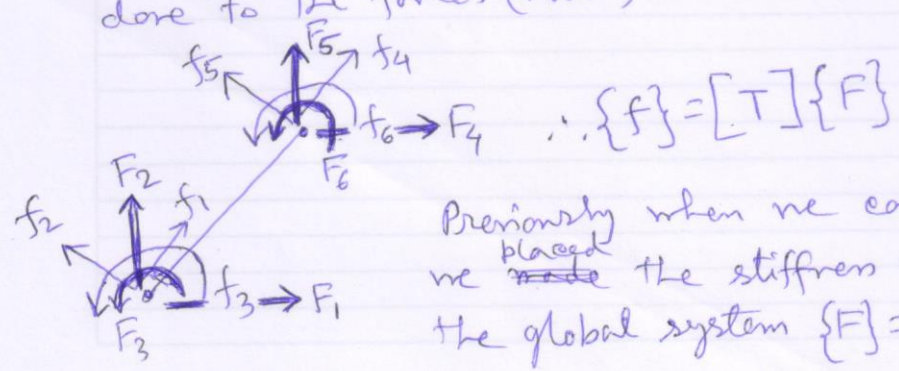 done to the forces
F5
f5 f4
f6 F4
F6
∴ {f} = [T] {F}
F2
f2 f1
f3 F1
F3
Previously when we
placed
we made the stiffness
the global system {F} =